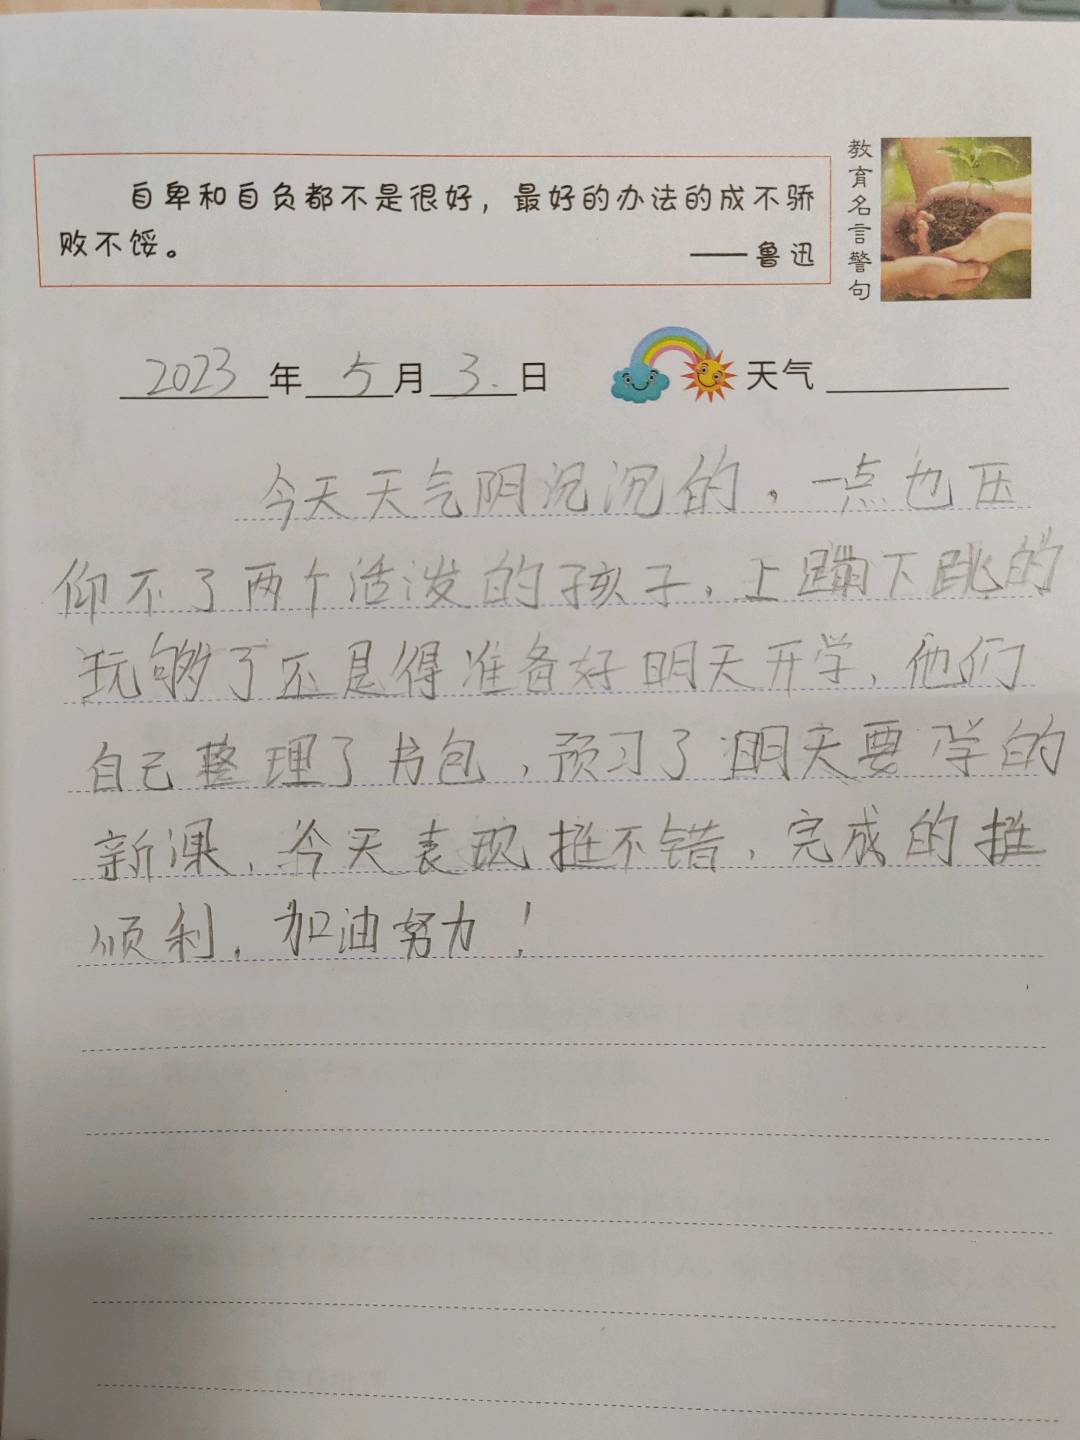 教育名言警句
自卑和自负都不是很好，最好的办法的成不骄
败不馁。
——鲁迅
2023年5月3.日 天气
今天天气阴沉沉的，一点也压
仰不了两个活泼的孩子，上蹦下跳的
玩够了还是得准备好明天开学，他们
自己整理了书包，预习了明天要学的
新课，今天表现挺不错，完成的挺
顺利，加油努力！